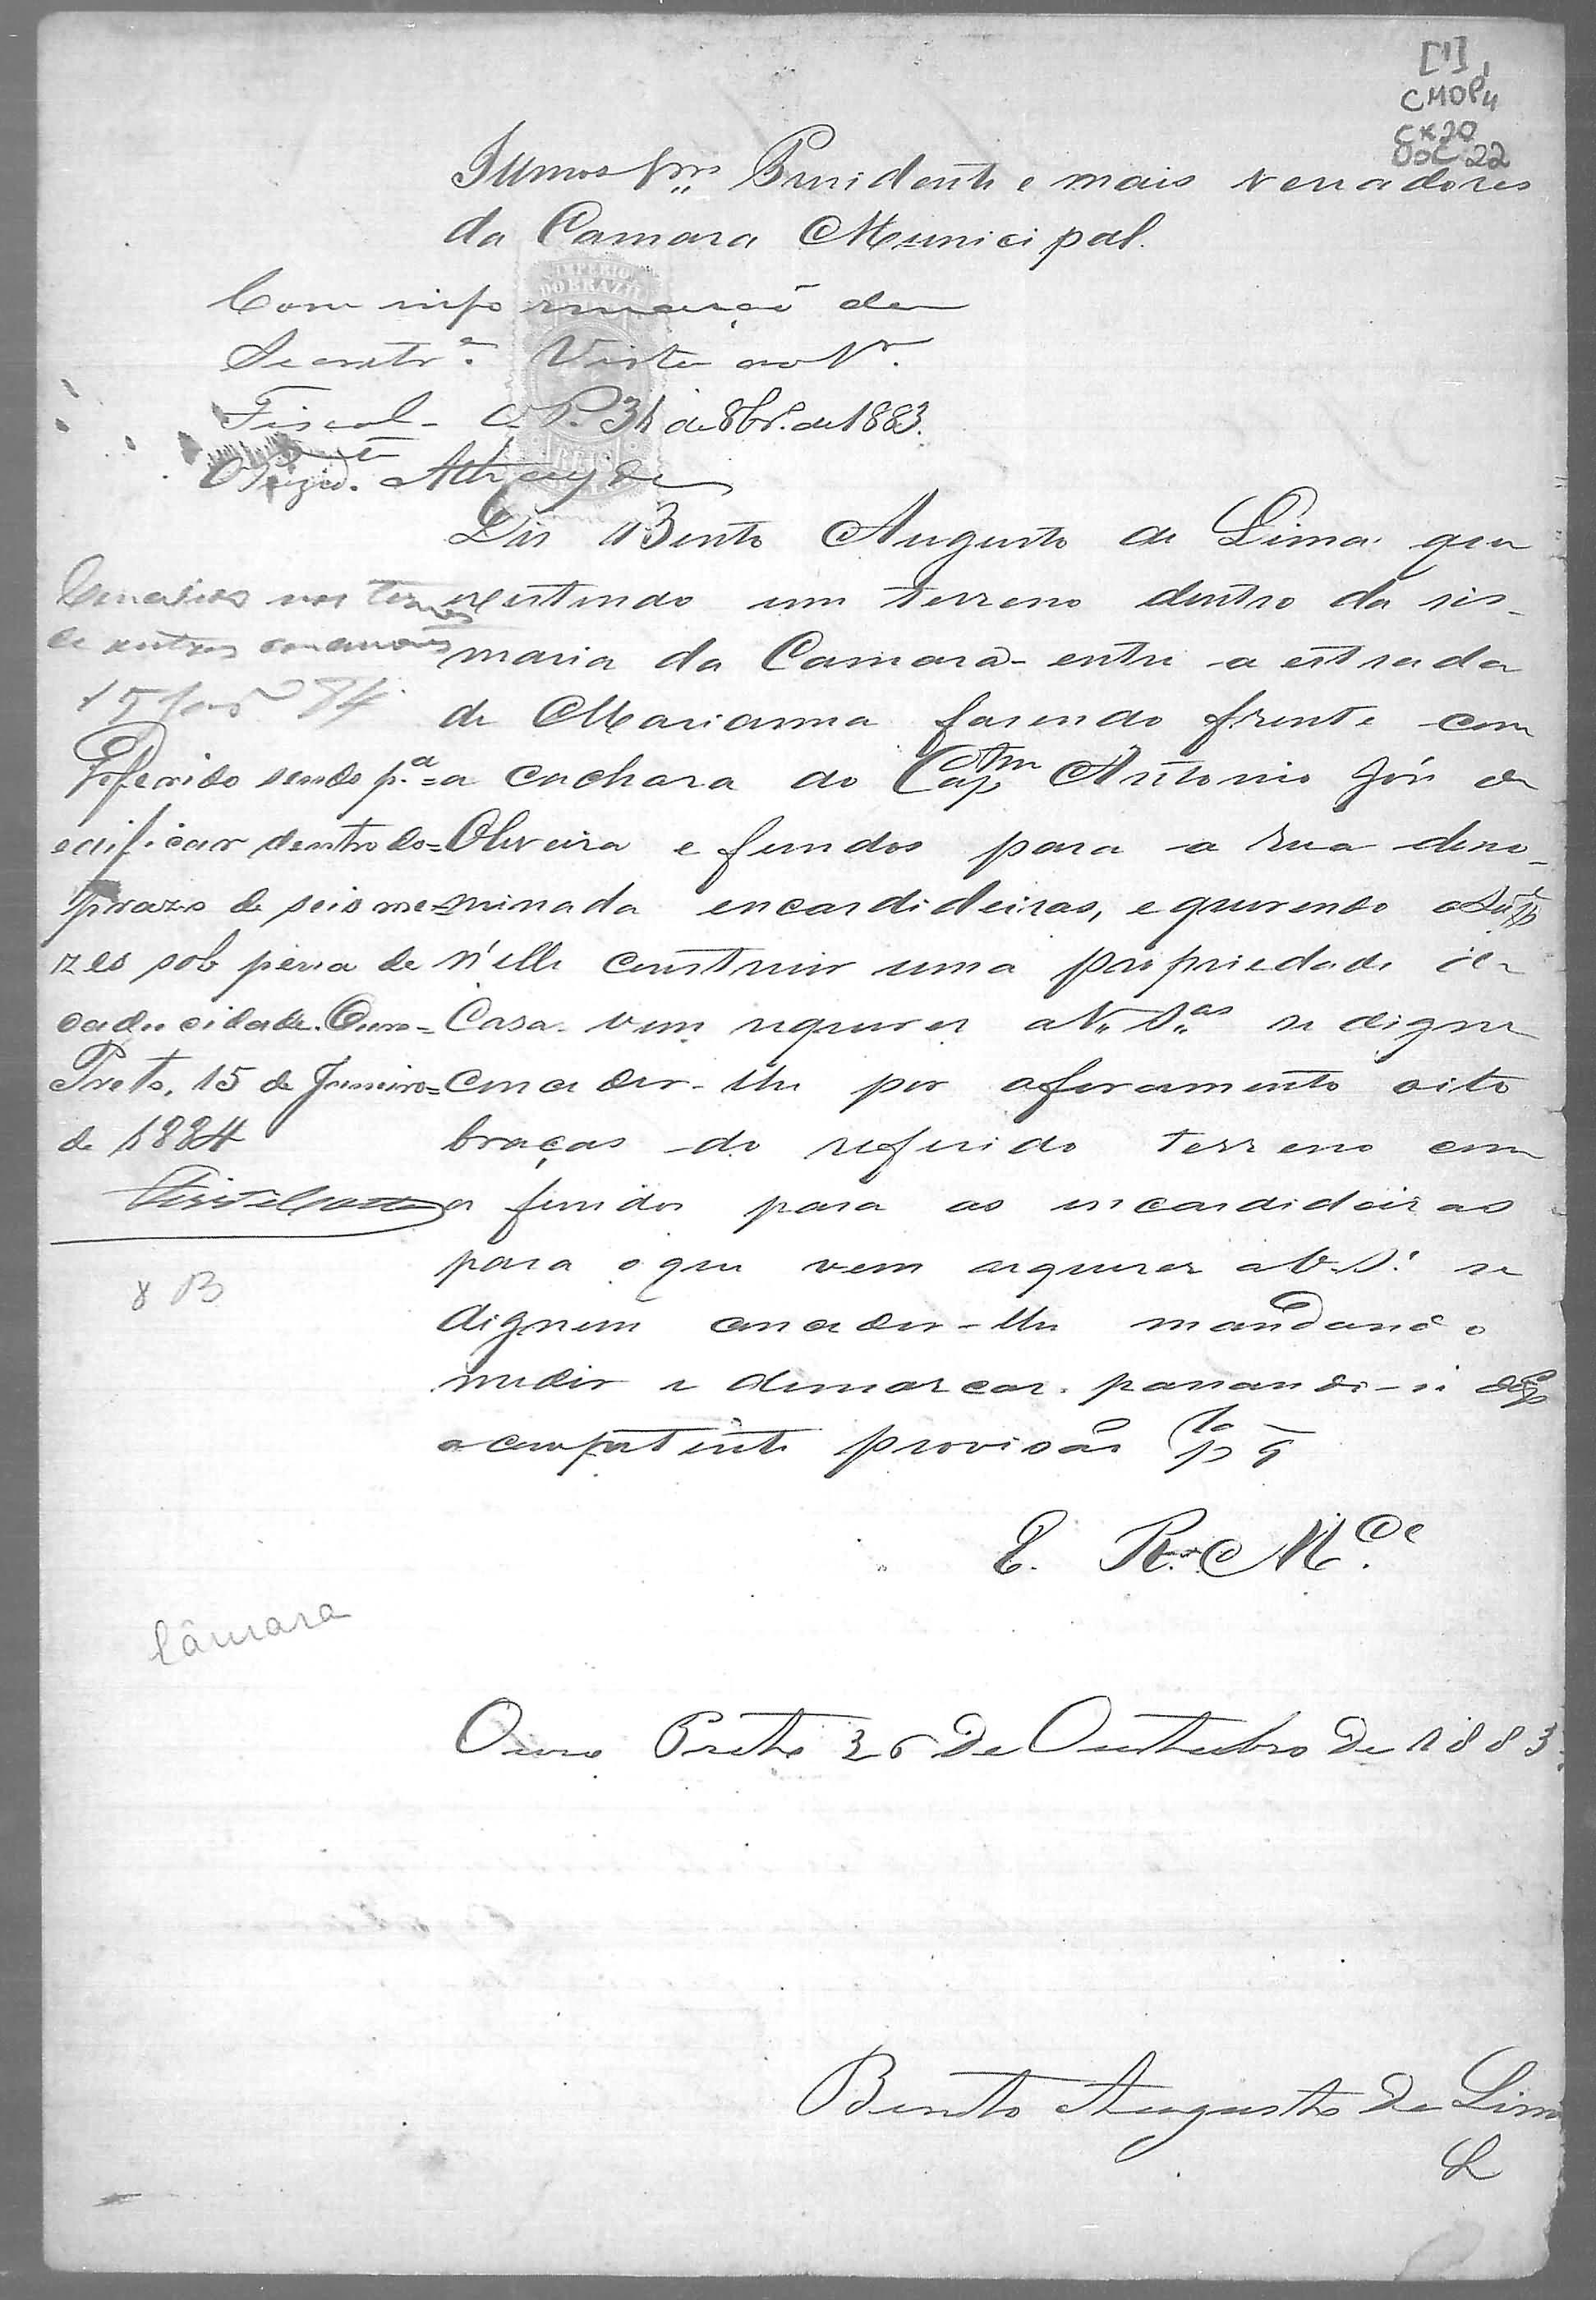 [1]
CMOP
CX 20
DOC 22
Illmos Snrs Presidente e mais vereadores
da Camara Municipal.
IMPERIO
DO BRAZIL
Com informação da
Secretrª. Vista ao Sr.
Fiscal. O. P. 31 de 8br. de 1883.
Athayde
Diz Bento Augusto de Lima que
existindo um terreno dentro da ses-
maria da Camara entre a estrada
de Marianna fasendo frente com
a cachara do Capam Antonio José de
Oliveira e fundos para a rua deno-
minada encardideiras, e querendo o Supp
n'elle construir uma propriedade de
Casa vem requerer a V. S.as se digne
conceder-lhe por aforamento oito
braças do referido terreno com
fundos para as encardideiras
para o que vem requerer a V. S. se
dignem conceder-lhe mandando
medir e demarcar. passando-se
a competente provisão p q
E. R. Mce.
Concedido nos termos
de outras
15 84
Deferido sendo p.a
edificar dentro do
praso de seis me-
zes sob pena de
caducidade. Ouro
Preto, 15 de Janeiro
de 1884
8 B
Câmara
Ouro Preto 26 de Outubro de 1883.
Bento Augusto de Lima